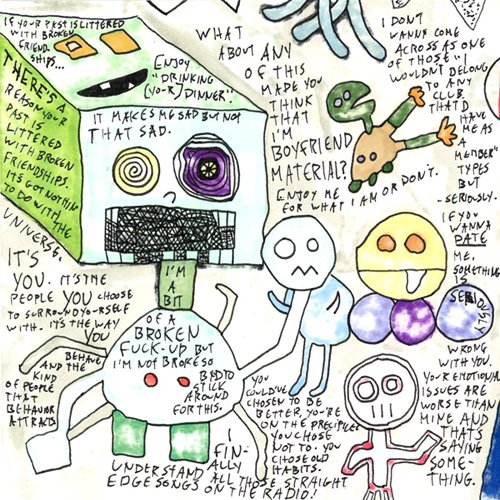 IF YOUR PAST IS LITTERED
WITH BROKEN
FRIEND
SHIPS...
ENJOY
"DRINKING
(YO-R) DINNER".
THERE'S A
REASON YOUR
PAST IS
LITTERED
WITH BROKEN
FRIENDSHIPS.
IT'S GOT NOTHIN
TO DO WITH THE
UNIVERSE.
IT'S
YOU. IT'S THE
PEOPLE YOU CHOOSE
TO SURROUND YOURSELF
WITH. IT'S THE WAY
YOU
BEHAVE
AND THE
KIND
OF PEOPLE
THAT
BEHAVIOR
ATTRACTS
IT MAKES ME SAD BUT NOT
THAT SAD.
I'M
A
BIT
OF A
BROKEN
FUCK-UP BUT
I'M NOT BROKE SO
BAD TO
STICK
AROUND
FOR THIS.
WHAT
ABOUT ANY
OF THIS
MADE YOU
THINK
THAT
I'M
BOYFRIEND
MATERIAL?
ENJOY ME
FOR WHAT I AM OR DON'T.
I DON'T
WANNA COME
ACROSS AS ONE
OF THOSE "I
WOULDN'T BELONG
TO ANY
CLUB
THAT'D
HAVE
ME AS
A
MEMBER"
TYPES
BUT
-SERIOUSLY.
IF YOU
WANNA
DATE
ME,
SOMETHING
IS
SERIOUSLY
WRONG
WITH YOU.
YOUR EMOTIONAL
ISSUES ARE
WORSE THAN
MINE AND
THAT'S
SAYING
SOME-
THING.
YOU
COULD'VE
CHOSEN TO BE
BETTER, YOU'RE
ON THE PRECIPICE
YOU CHOSE
NOT TO. YOU
CHOSE OLD
HABITS.
I
FIN-
ALLY
UNDERSTAND ALL THOSE STRAIGHT
EDGE SONGS ON THE RADIO.